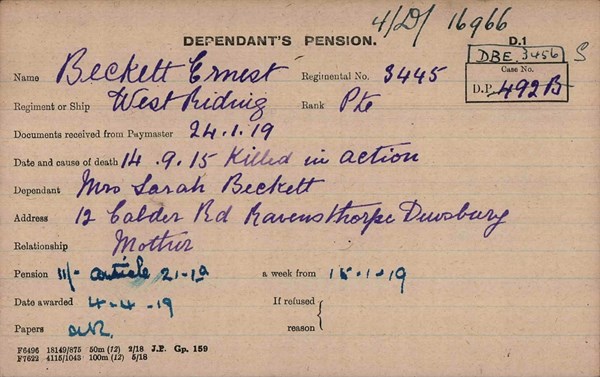 4/D/ 16966
DEPENDANT'S PENSION. D.1
DBE 3456 S
Name Beckett Ernest Regimental No. 3445 Case No.
D.P. 492B
Regiment or Ship West Riding Rank Pte
Documents received from Paymaster 24.1.19
Date and cause of death 14.9.15 Killed in action
Dependant Mrs Sarah Beckett
Address 12 Calder Rd Ravensthorpe Dewsbury
Relationship Mother
Pension 11/- article 21-1a a week from 15-1-19
Date awarded 4-4-19 If refused
Papers reason
F6496 18149/875 50m (12) 2/18 J.P. Gp. 159
F7622 4115/1043 100m (12) 5/18